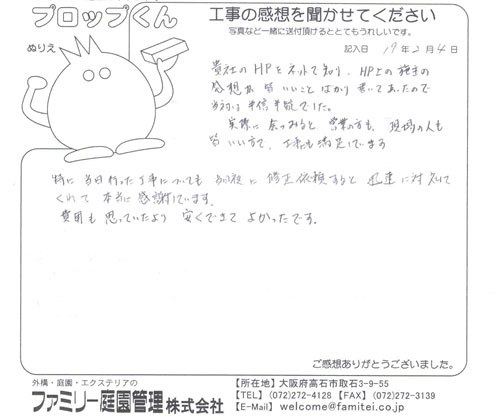 プロップくん
ぬりえ
工事の感想を聞かせてください
写真など一緒に送付頂けるととてもうれしいです。
記入日 19年2月4日
貴社のHPをネットで知り、HP上の施主の
感想が皆いいことばかり書いてあったので
当初は半信半疑でした。
実際に会ってみると営業の方も、現場の人も
皆いい方で、工事も満足しています
特に当日行った工事についても、その後に修正依頼すると迅速に対処して
くれて本当に感謝しています。
費用も思っていたより安くできてよかったです。
ご感想ありがとうございました。
外構・庭園・エクステリアの
ファミリー庭園管理株式会社
【所在地】大阪府高石市取石3-9-55
【TEL】(072)272-4128【FAX】(072)272-3139
【E-Mail】 welcome@famitei.co.jp